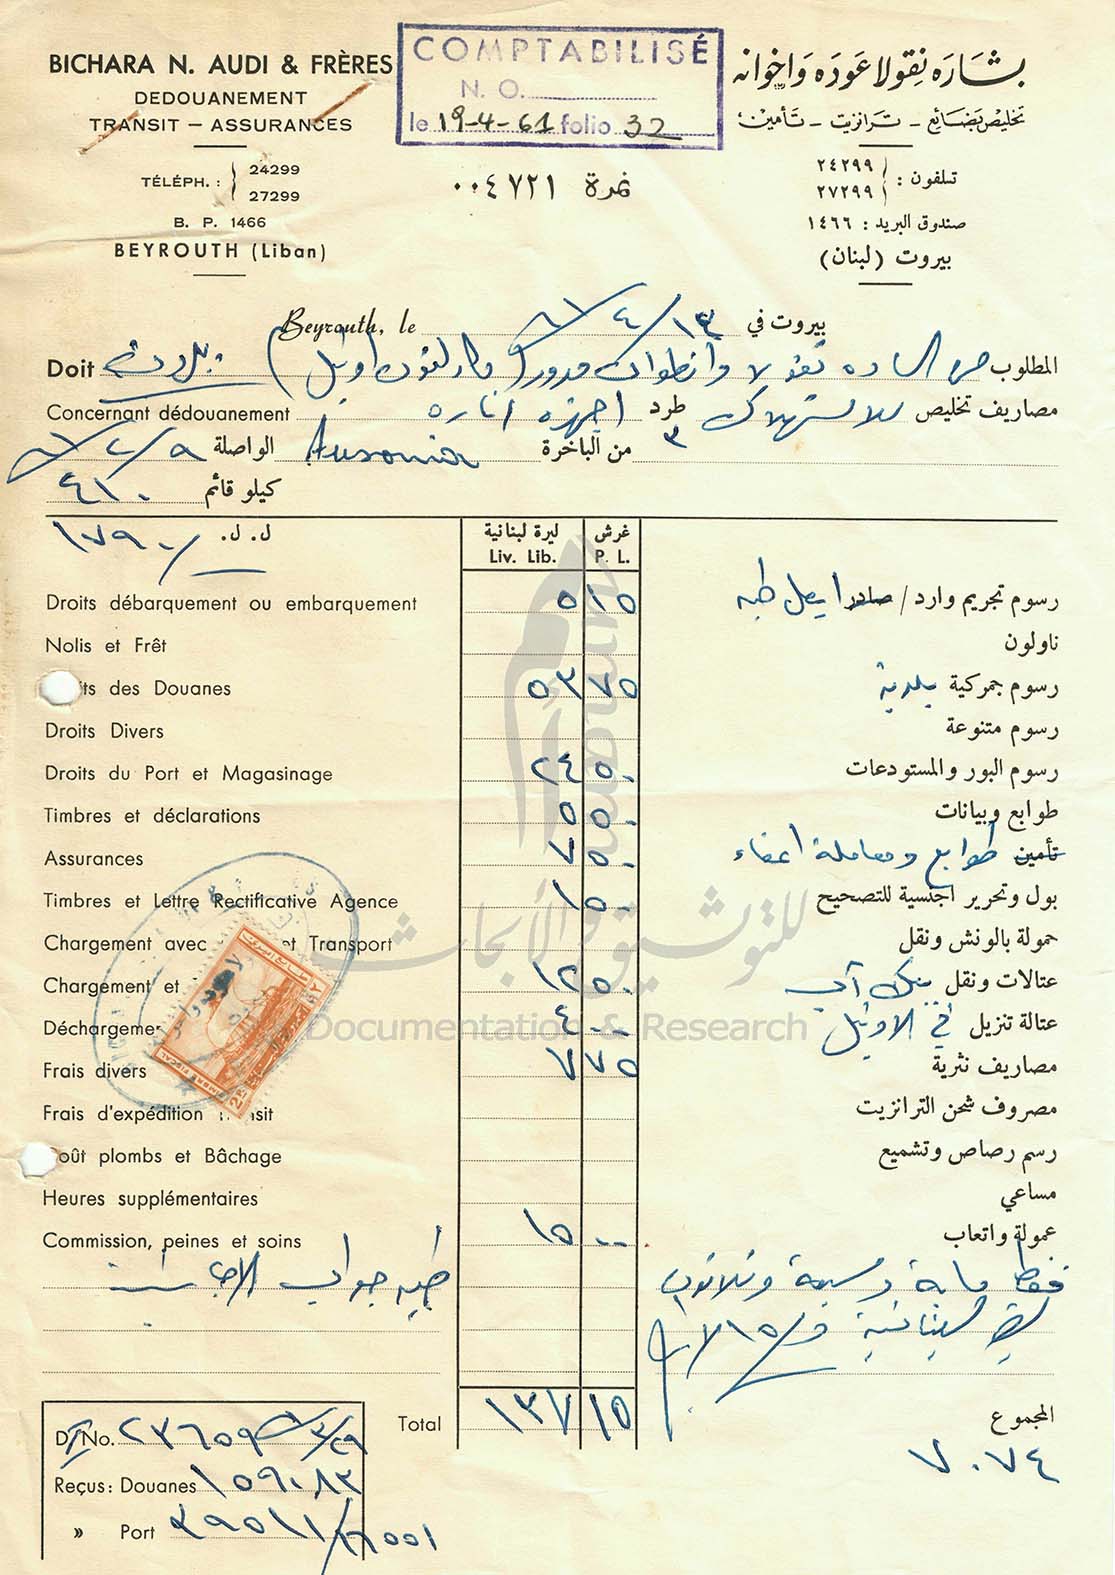 BICHARA N. AUDI & FRÈRES
DEDOUANEMENT
TRANSIT – ASSURANCES
TÉLÉPH. : 24299
27299
B. P. 1466
BEYROUTH (Liban)
COMPTABILISÉ
N. O.
le 19-4-61 folio 32
نمرة ٠٠٤٧٢١
بشاره نقولا عوده واخوانه
تخليص بضائع - ترانزيت - تأمين
تلفون : ٢٤٢٩٩
٢٧٢٩٩
صندوق البريد : ١٤٦٦
بيروت (لبنان)
Beyrouth, le ٦١/٤/١٣ بيروت في
Doit المطلوب من الساده نقولا وانطوان بيروت
Concernant dédouanement مصاريف تخليص للاستهلاك ٣ طرد اجهزه اناره
من الباخرة Ausonia الواصلة
كيلو قائم ٤١٠
ل.ل. ١٧٩٠/
ليرة لبنانية غرش
Liv. Lib. P. L.
Droits débarquement ou embarquement ٥ ١٥ رسوم تجريم وارد / صادر
Nolis et Frêt ناولون
ts des Douanes ٥٣ ٧٥ رسوم جمركية بلدية
Droits Divers رسوم متنوعة
Droits du Port et Magasinage ٢٤ ٥٠ رسوم البور والمستودعات
Timbres et déclarations ٥ ٥٠ طوابع وبيانات
Assurances ٧ ٥٠ تأمين طوابع ومعاملة اعفاء
Timbres et Lettre Rectificative Agence ١ ٥٠ بول وتحرير اجنسية للتصحيح
Chargement avec et Transport حمولة بالونش ونقل
Chargement et ١٢ ٥٠ عتالات ونقل
Déchargeme ٤ ٠٠ عتالة تنزيل في الاوتيل
Frais divers ٧ ٧٥ مصاريف نثرية
Frais d'expédition sit مصروف شحن الترانزيت
oût plombs et Bâchage رسم رصاص وتشميع
Heures supplémentaires مساعي
Commission, peines et soins ١٥ ٠٠ عمولة واتعاب
فقط ماية وسبعة وثلاثون
ليرة لبنانية و ١٥/
Total ١٣٧ ١٥ المجموع
٧٠٧٤
D/No. ٢٣٦٥٩
Reçus: Douanes ١٥٩٠٨٣
» Port
TIMBRE FISCAL
للتوثيق والأبحاث
Documentation & Research